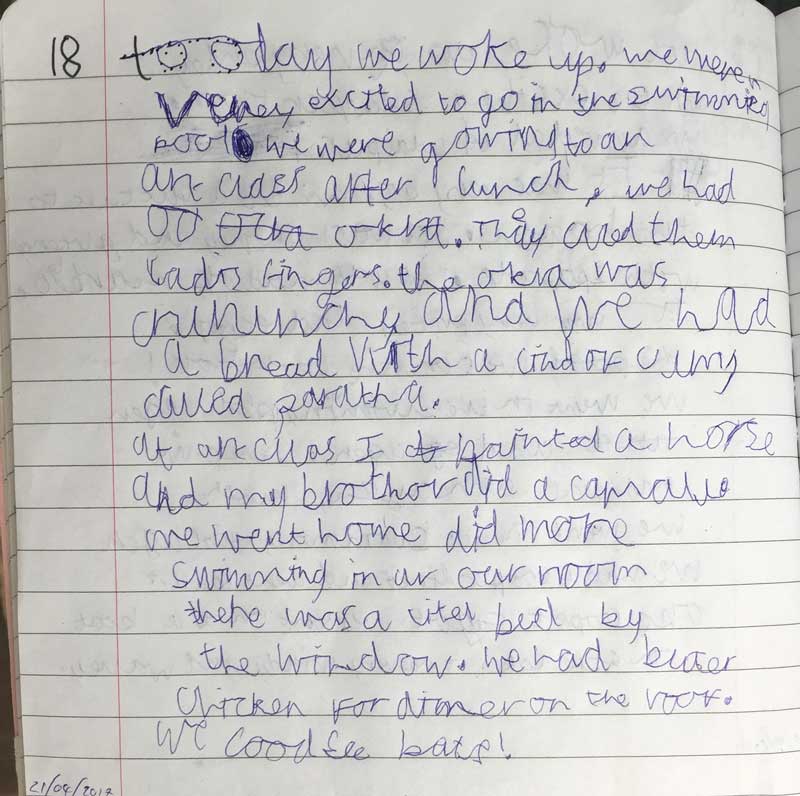 18 today we woke up. we were
verey excited to go in the swimming
pool we were gowing to an
art class after lunch, we had
okra. They cued them
Ladis fingers. the okra was
crununchy and we had
a bread with a cind of curry
called paratha.
at art clas I painted a horse
And my brothor did a camale
we went home did more
swimming in ur our room
there was a litel bed by
the window. we had buter
chicken for dinner on the roof.
we cood see bats!
21/04/2018